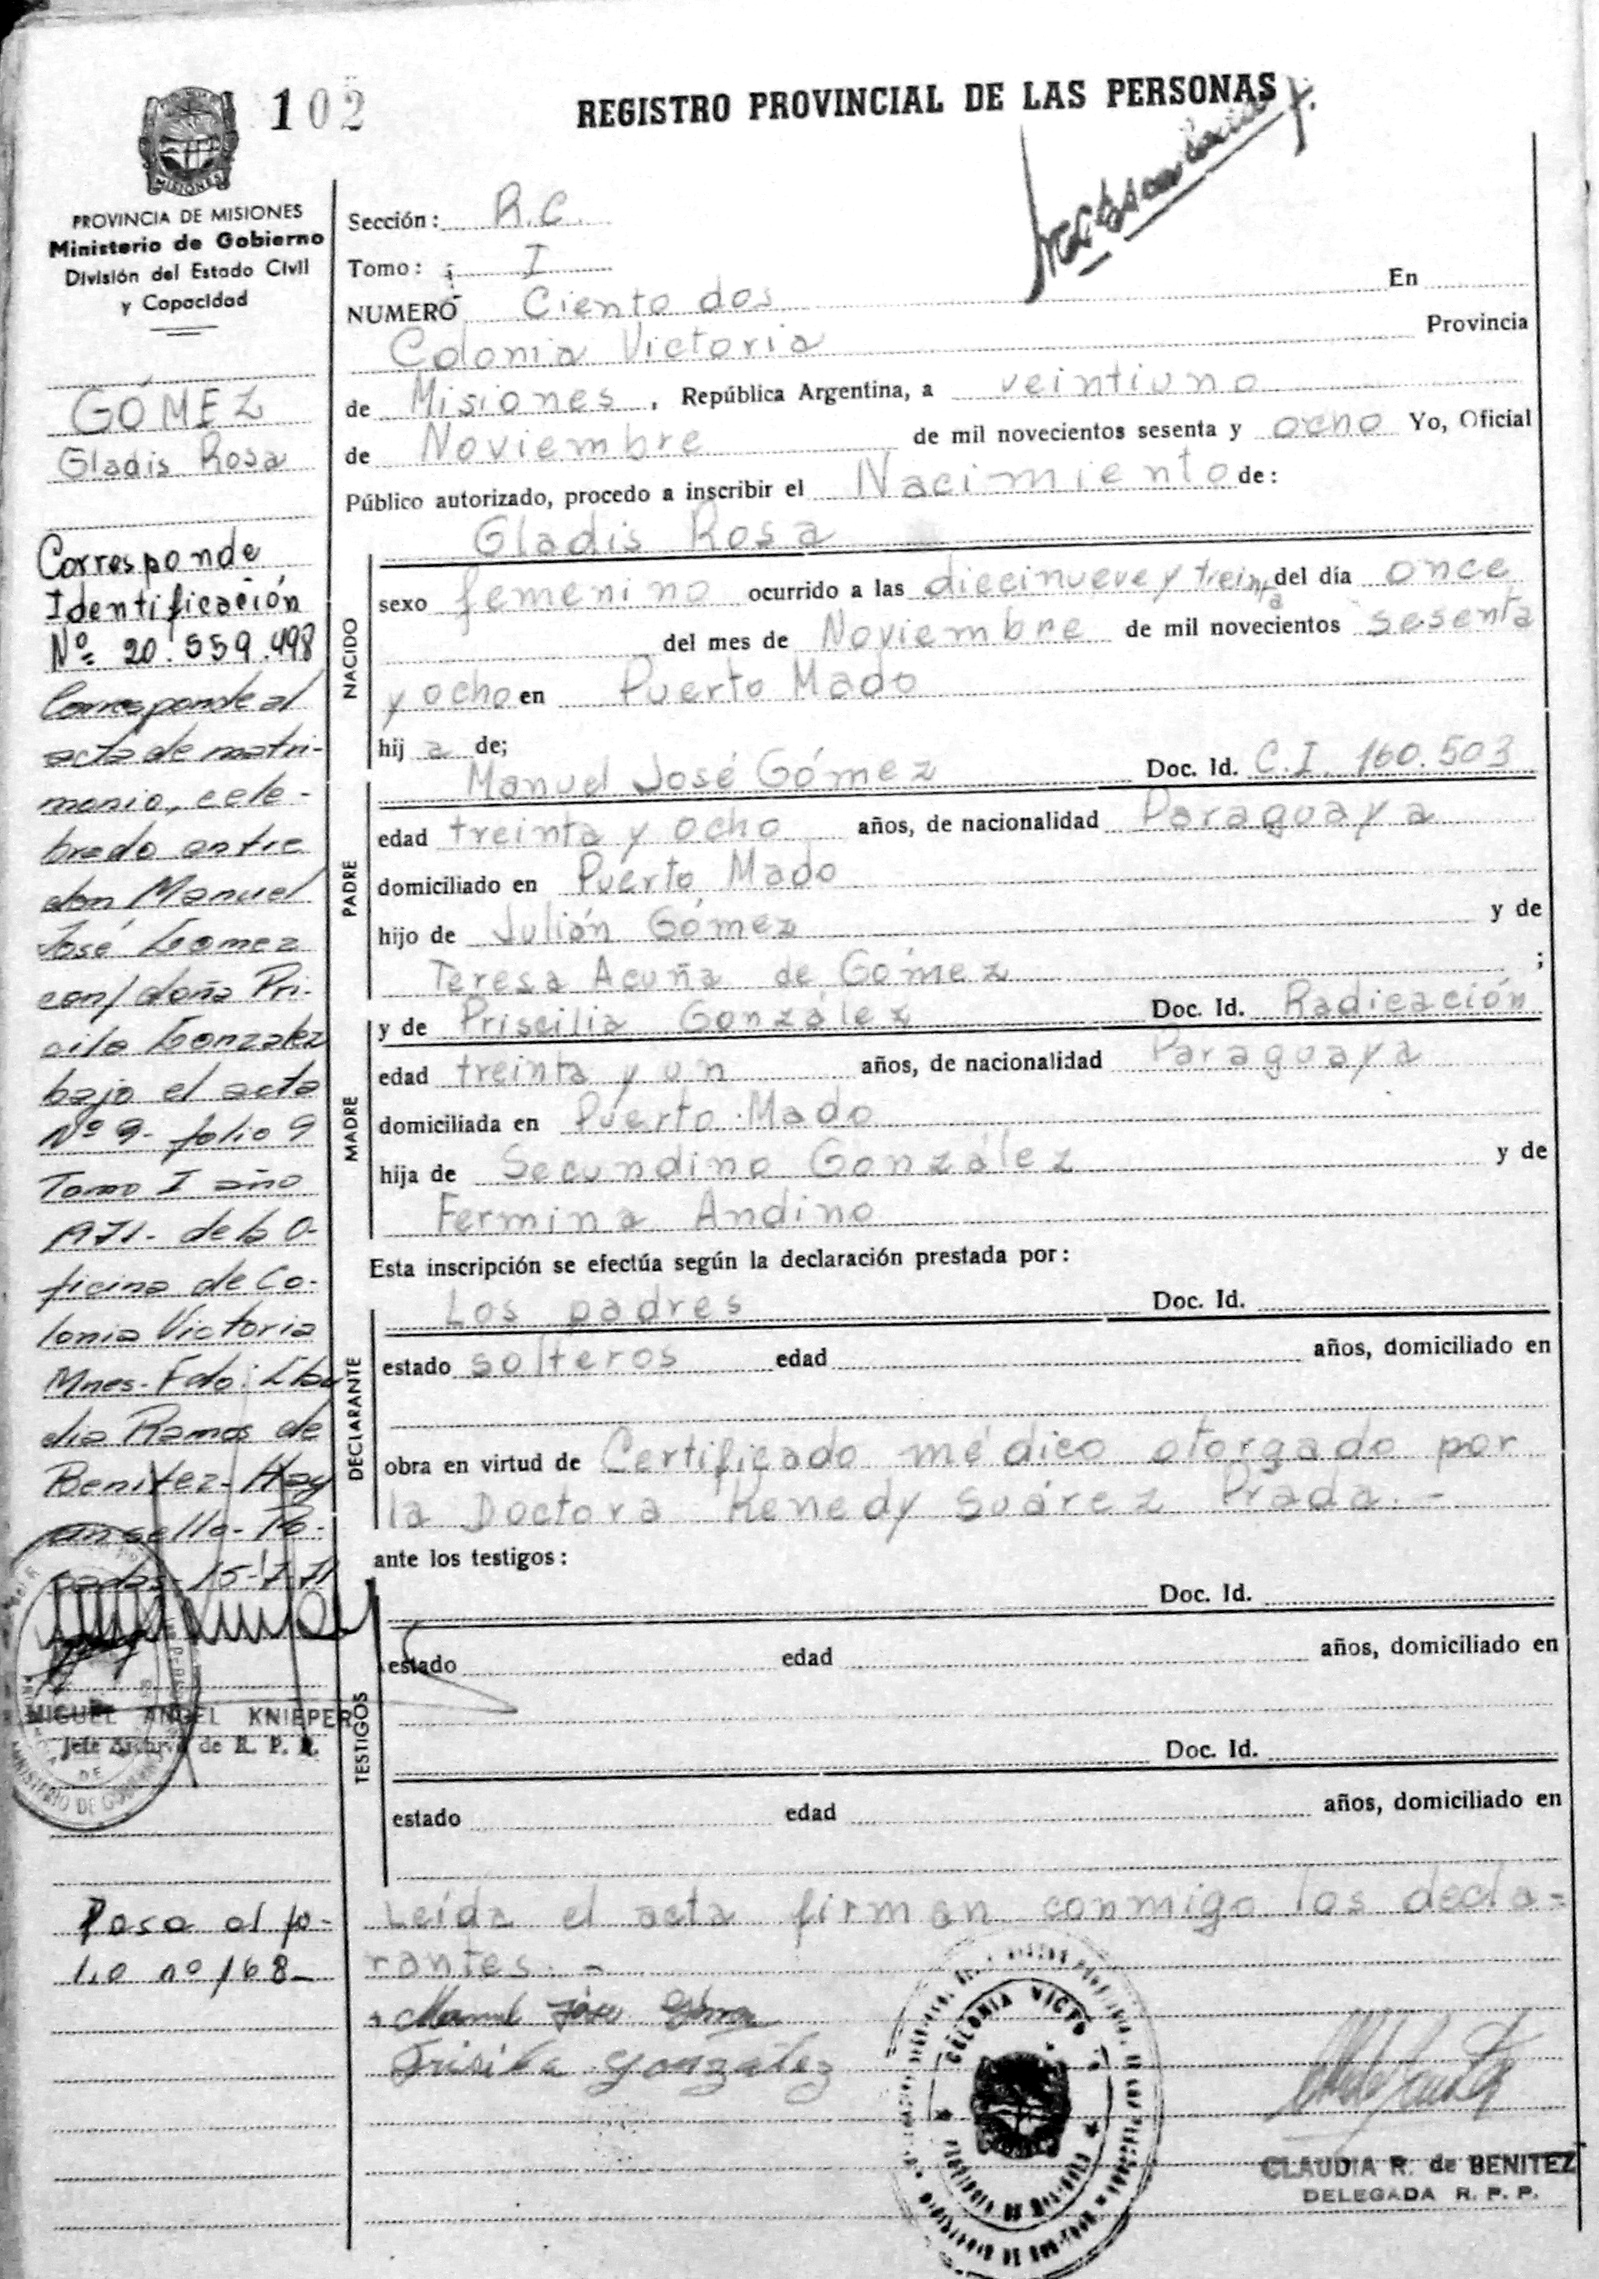 102
REGISTRO PROVINCIAL DE LAS PERSONAS
MISIONES
PROVINCIA DE MISIONES
Ministerio de Gobierno
División del Estado Civil
y Capacidad
GÓMEZ
Gladis Rosa
Corresponde
Identificación
Nº= 20.559.498
Corresponde al
acta de matri-
monio, cele-
brado entre
don Manuel
José Gomez
con/ doña Pri-
cila Gonzalez
bajo el acta
Nº 9- folio 9
Tomo I año
1971- de la O-
ficina de Co-
lonia Victoria
Mnes- Fdo:
dia Ramos de
Benitez- Hay
un sello- Po-
sadas- 15-7-71
MIGUEL ANGEL KNIEPER
Jefe Archivo de R. P. P.
MINISTERIO DE GOBIERNO
Pasa al fo-
lio nº 168-
Sección: R.C.
Tomo: I
NUMERO Ciento dos En
Colonia Victoria Provincia
de Misiones, República Argentina, a veintiuno
de Noviembre de mil novecientos sesenta y ocho Yo, Oficial
Público autorizado, procedo a inscribir el Nacimiento de:
Gladis Rosa
NACIDO
sexo femenino ocurrido a las diecinueve y treinta del día once
del mes de Noviembre de mil novecientos sesenta
y ocho en Puerto Mado
hij a de;
Manuel José Gómez Doc. Id. C.I. 160.503
PADRE
edad treinta y ocho años, de nacionalidad Paraguaya
domiciliado en Puerto Mado
hijo de Julián Gómez y de
Teresa Acuña de Gómez ;
y de Priscilia González Doc. Id. Radicación
MADRE
edad treinta y un años, de nacionalidad Paraguaya
domiciliada en Puerto Mado
hija de Secundino González y de
Fermina Andino
Esta inscripción se efectúa según la declaración prestada por:
Los padres Doc. Id.
DECLARANTE
estado solteros edad años, domiciliado en
obra en virtud de Certificado médico otorgado por
la Doctora Kenedy Suárez Prada.-
ante los testigos:
Doc. Id.
TESTIGOS
estado edad años, domiciliado en
Doc. Id.
estado edad años, domiciliado en
Leída el acta firman conmigo los decla=
rantes.-
Manuel José Gómez
Prisila gonzalez
COLONIA VICTORIA
CLAUDIA R. de BENITEZ
DELEGADA R. P. P.